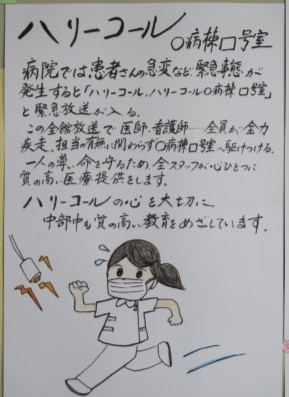 ハリーコール
○病棟□号室
病院では患者さんの急変など、緊急事態が
発生すると「ハリーコール、ハリーコール○病棟□号室」
と緊急放送が入る。
この全館放送で、医師、看護師……全員が全力
疾走、担当の有無に関わらず○病棟へ駆けつける。
一人の尊い命を守るため、全スタッフが心ひとつに
質の高い医療提供をします。
ハリーコールの心を大切に
中部中も質の高い教育をめざしています。